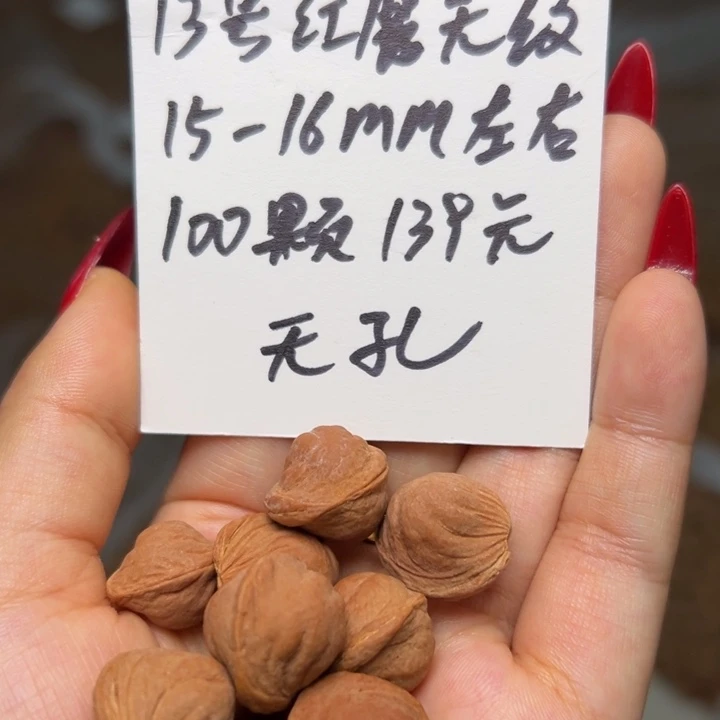 13号红魔无纹
15-16mm左右
100颗139元
无孔